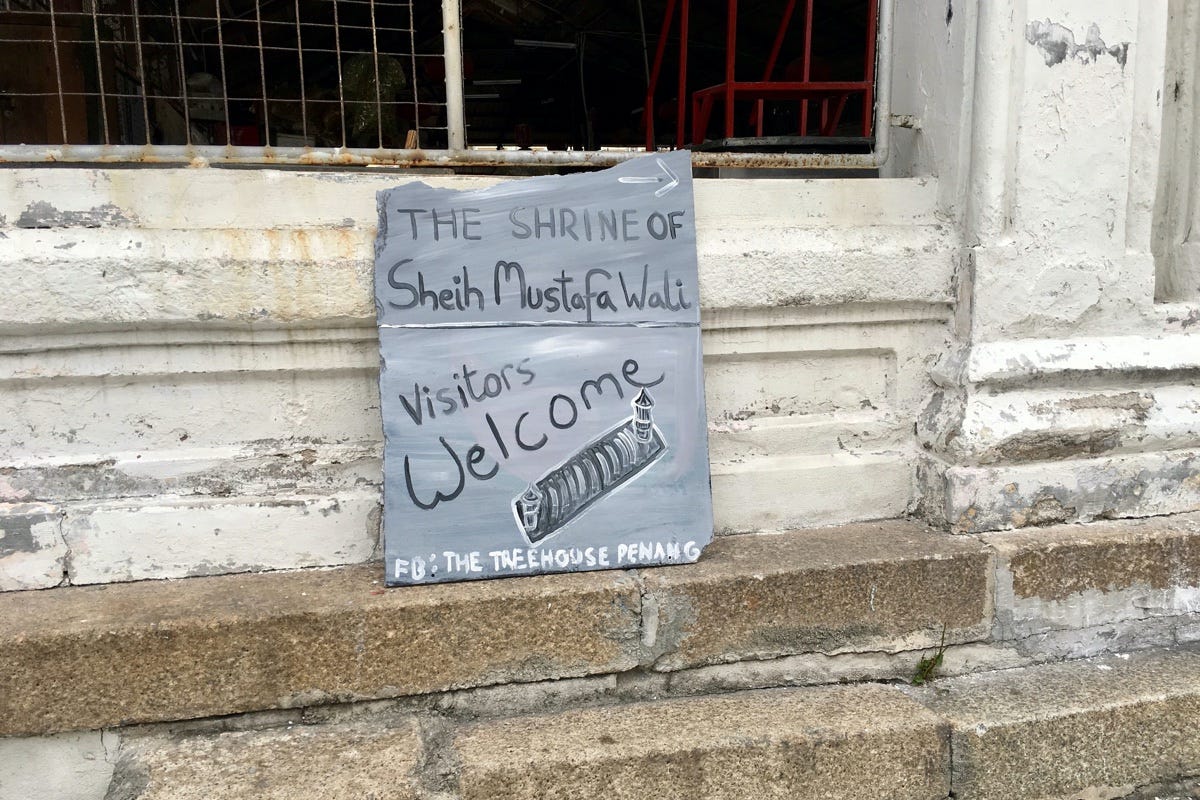 THE SHRINE OF
Sheih Mustafa Wali
Visitors
Welcome
FB: THE TREEHOUSE PENANG